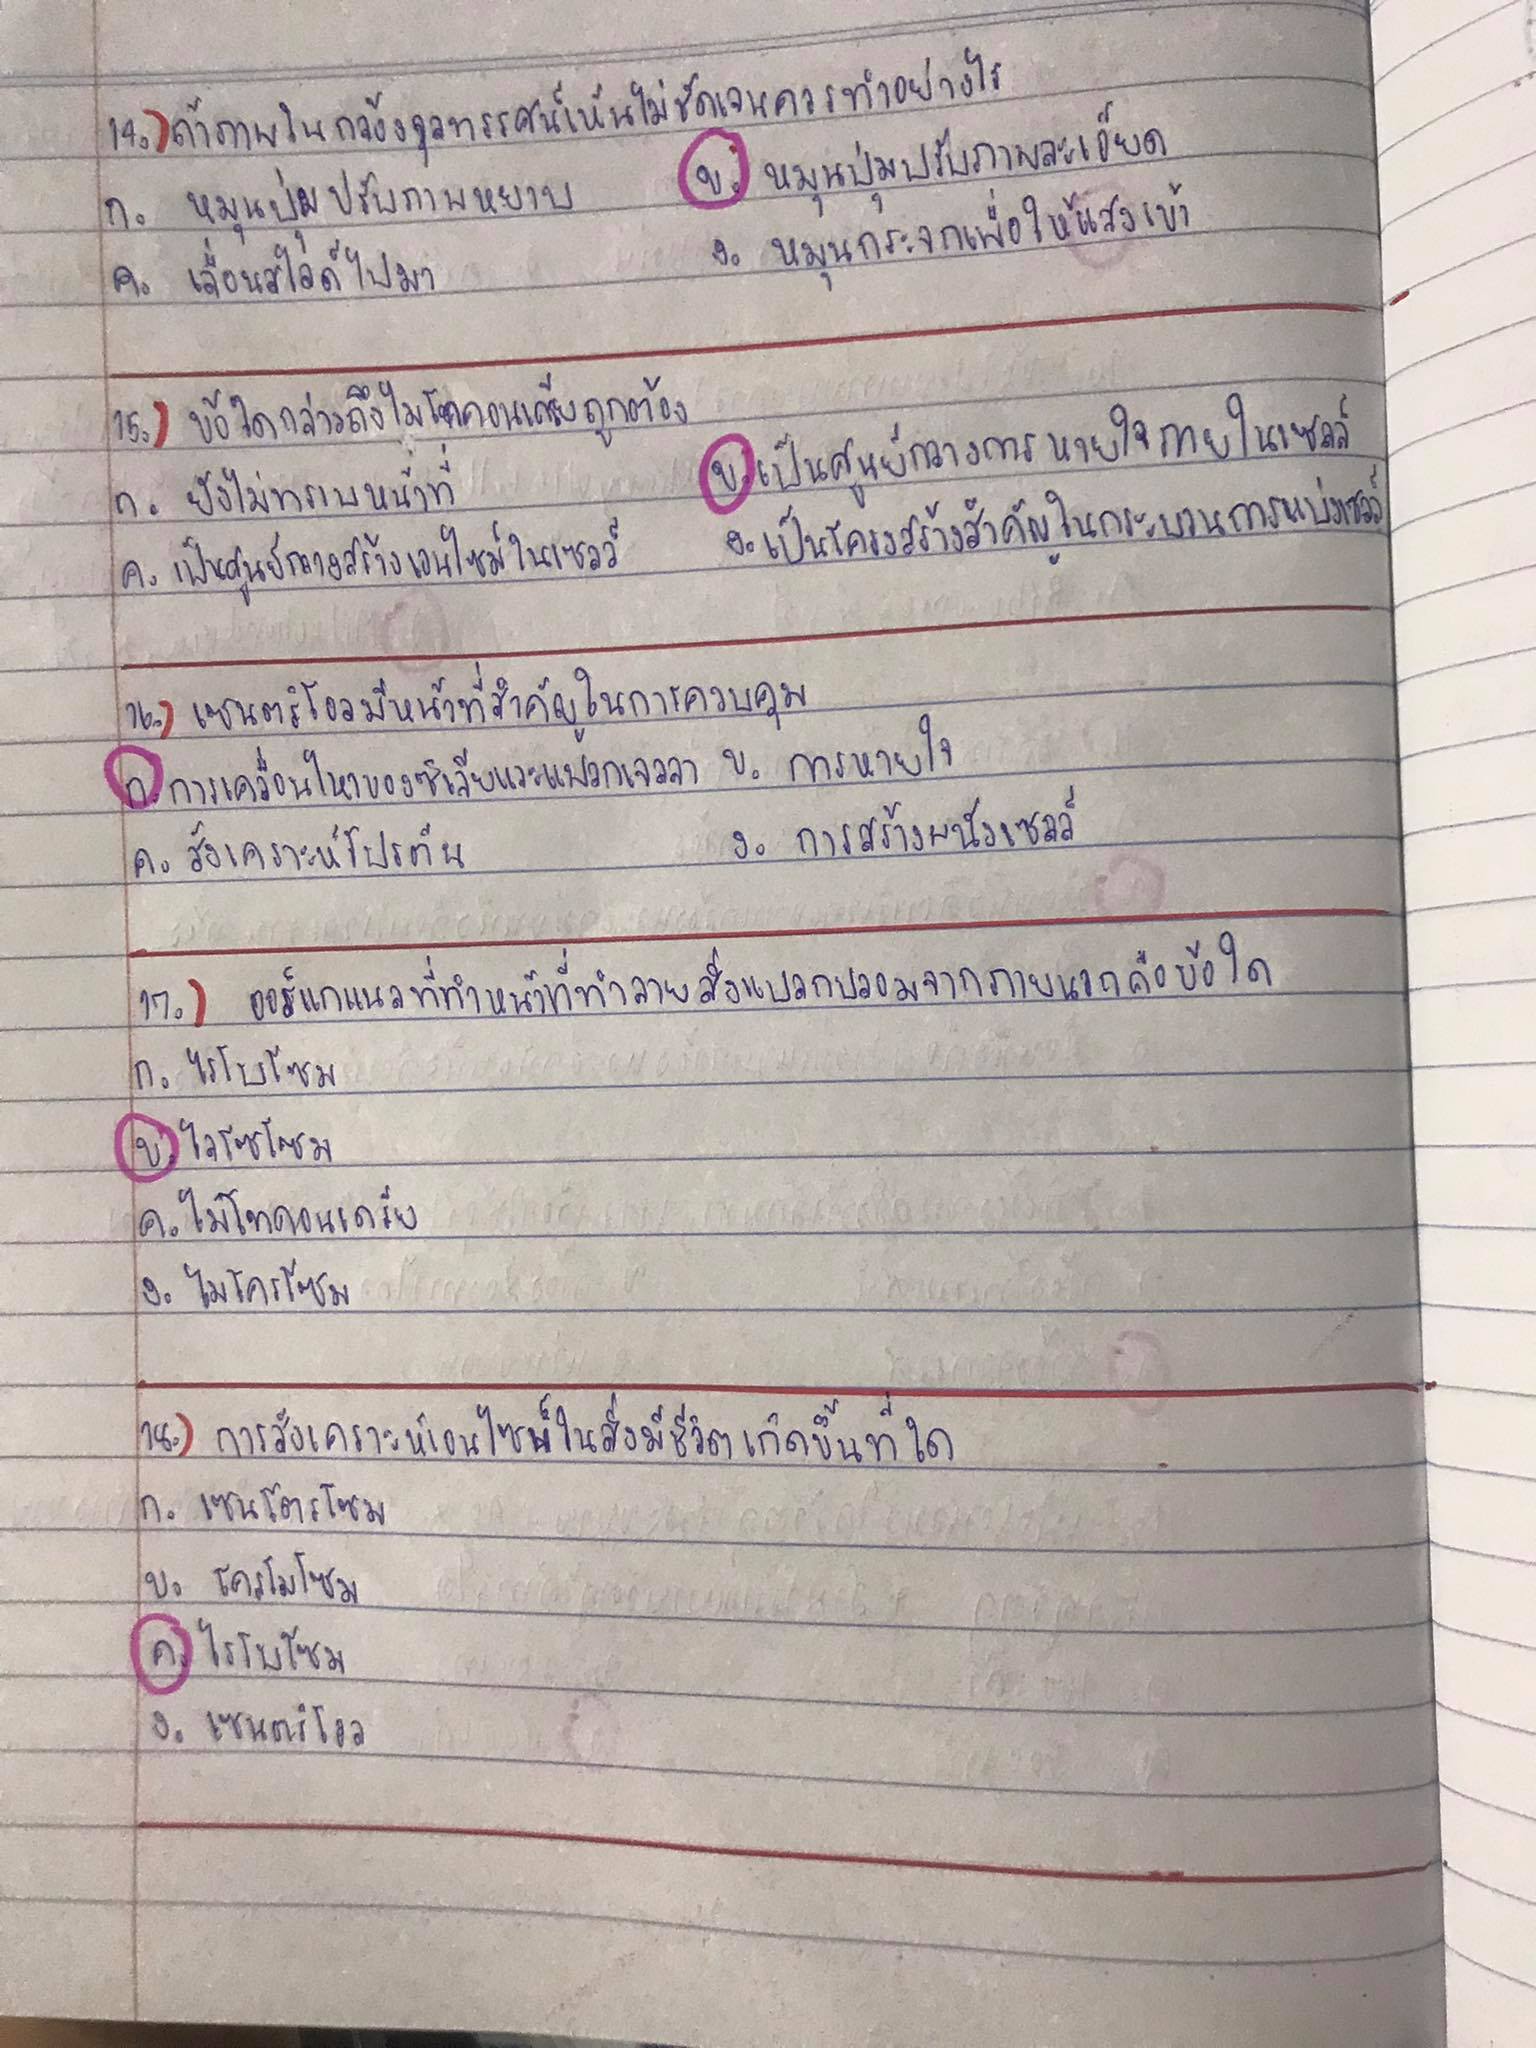 14.) ถ้าภาพในกล้องจุลทรรศน์เห็นไม่ชัดเจนควรทำอย่างไร
ก. หมุนปุ่มปรับภาพหยาบ ข. หมุนปุ่มปรับภาพละเอียด
ค. เลื่อนสไลด์ไปมา ง. หมุนกระจกเพื่อให้แสงเข้า
15.) ข้อใดกล่าวถึงไมโทคอนเดรียถูกต้อง
ก. ยังไม่ทราบหน้าที่ ข. เป็นศูนย์กลางการหายใจภายในเซลล์
ค. เป็นศูนย์กลางสร้างเอนไซม์ในเซลล์ ง. เป็นโครงสร้างสำคัญในกระบวนการแบ่งเซลล์
16.) เซนตริโอลมีหน้าที่สำคัญในการควบคุม
ก. การเคลื่อนไหวของซิเลียและแฟลกเจลลา ข. การหายใจ
ค. สังเคราะห์โปรตีน ง. การสร้างผนังเซลล์
17.) ออร์แกแนลที่ทำหน้าที่ทำลายสิ่งแปลกปลอมจากภายนอกคือข้อใด
ก. ไรโบโซม
ข. ไลโซโซม
ค. ไมโทคอนเดรีย
ง. ไมโครโซม
18.) การสังเคราะห์เอนไซม์ในสิ่งมีชีวิตเกิดขึ้นที่ใด
ก. เซนโตรโซม
ข. โครโมโซม
ค. ไรโบโซม
ง. เซนตริโอล